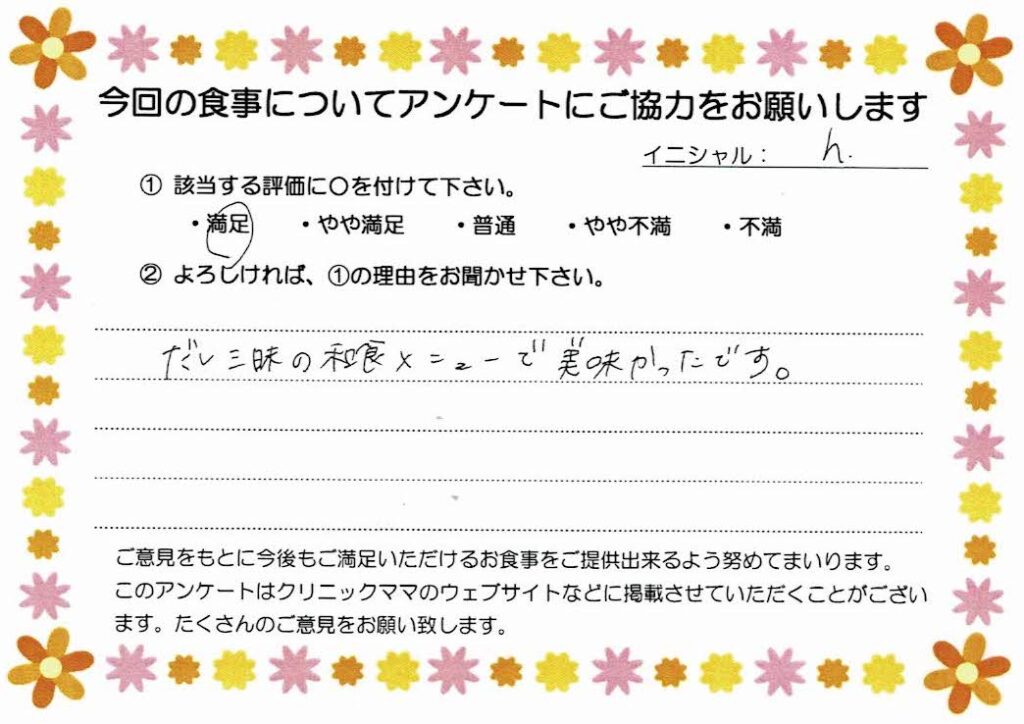 今回の食事についてアンケートにご協力をお願いします
イニシャル： h.
① 該当する評価に〇を付けて下さい。
・満足 ・やや満足 ・普通 ・やや不満 ・不満
② よろしければ、①の理由をお聞かせ下さい。
だし三昧の和食メニューで美味かったです。
ご意見をもとに今後もご満足いただけるお食事をご提供出来るよう努めてまいります。
このアンケートはクリニックママのウェブサイトなどに掲載させていただくことがござい
ます。たくさんのご意見をお願い致します。